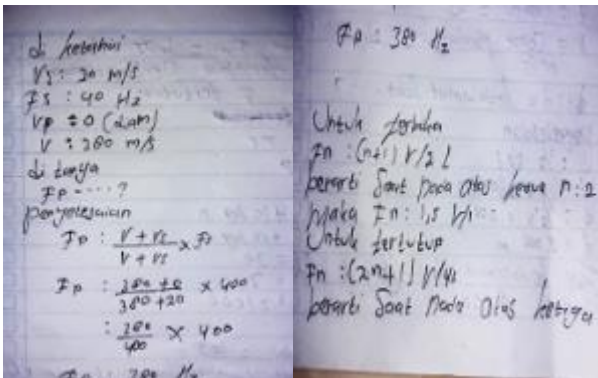 di ketahui
Vs : 20 m/s
Fs : 40 Hz
Vp : 0 (diam)
V : 380 m/s
di tanya
Fp ----- ?
penyelesaian
Fp : V + Vs / V + Vs × Fs
Fp : 380 + 0 / 380 + 20 × 400
: 380 / 400 × 400
Fp : 380 Hz
Fp : 380 Hz
Untuk terbuka
Fn : (n+1) V/2 L
berarti Saat nada atas kedua n : 2
Maka Fn : 1,5 V/
Untuk tertutup
Fn : (2n+1) V/4L
berarti Saat Nada Atas ketiga